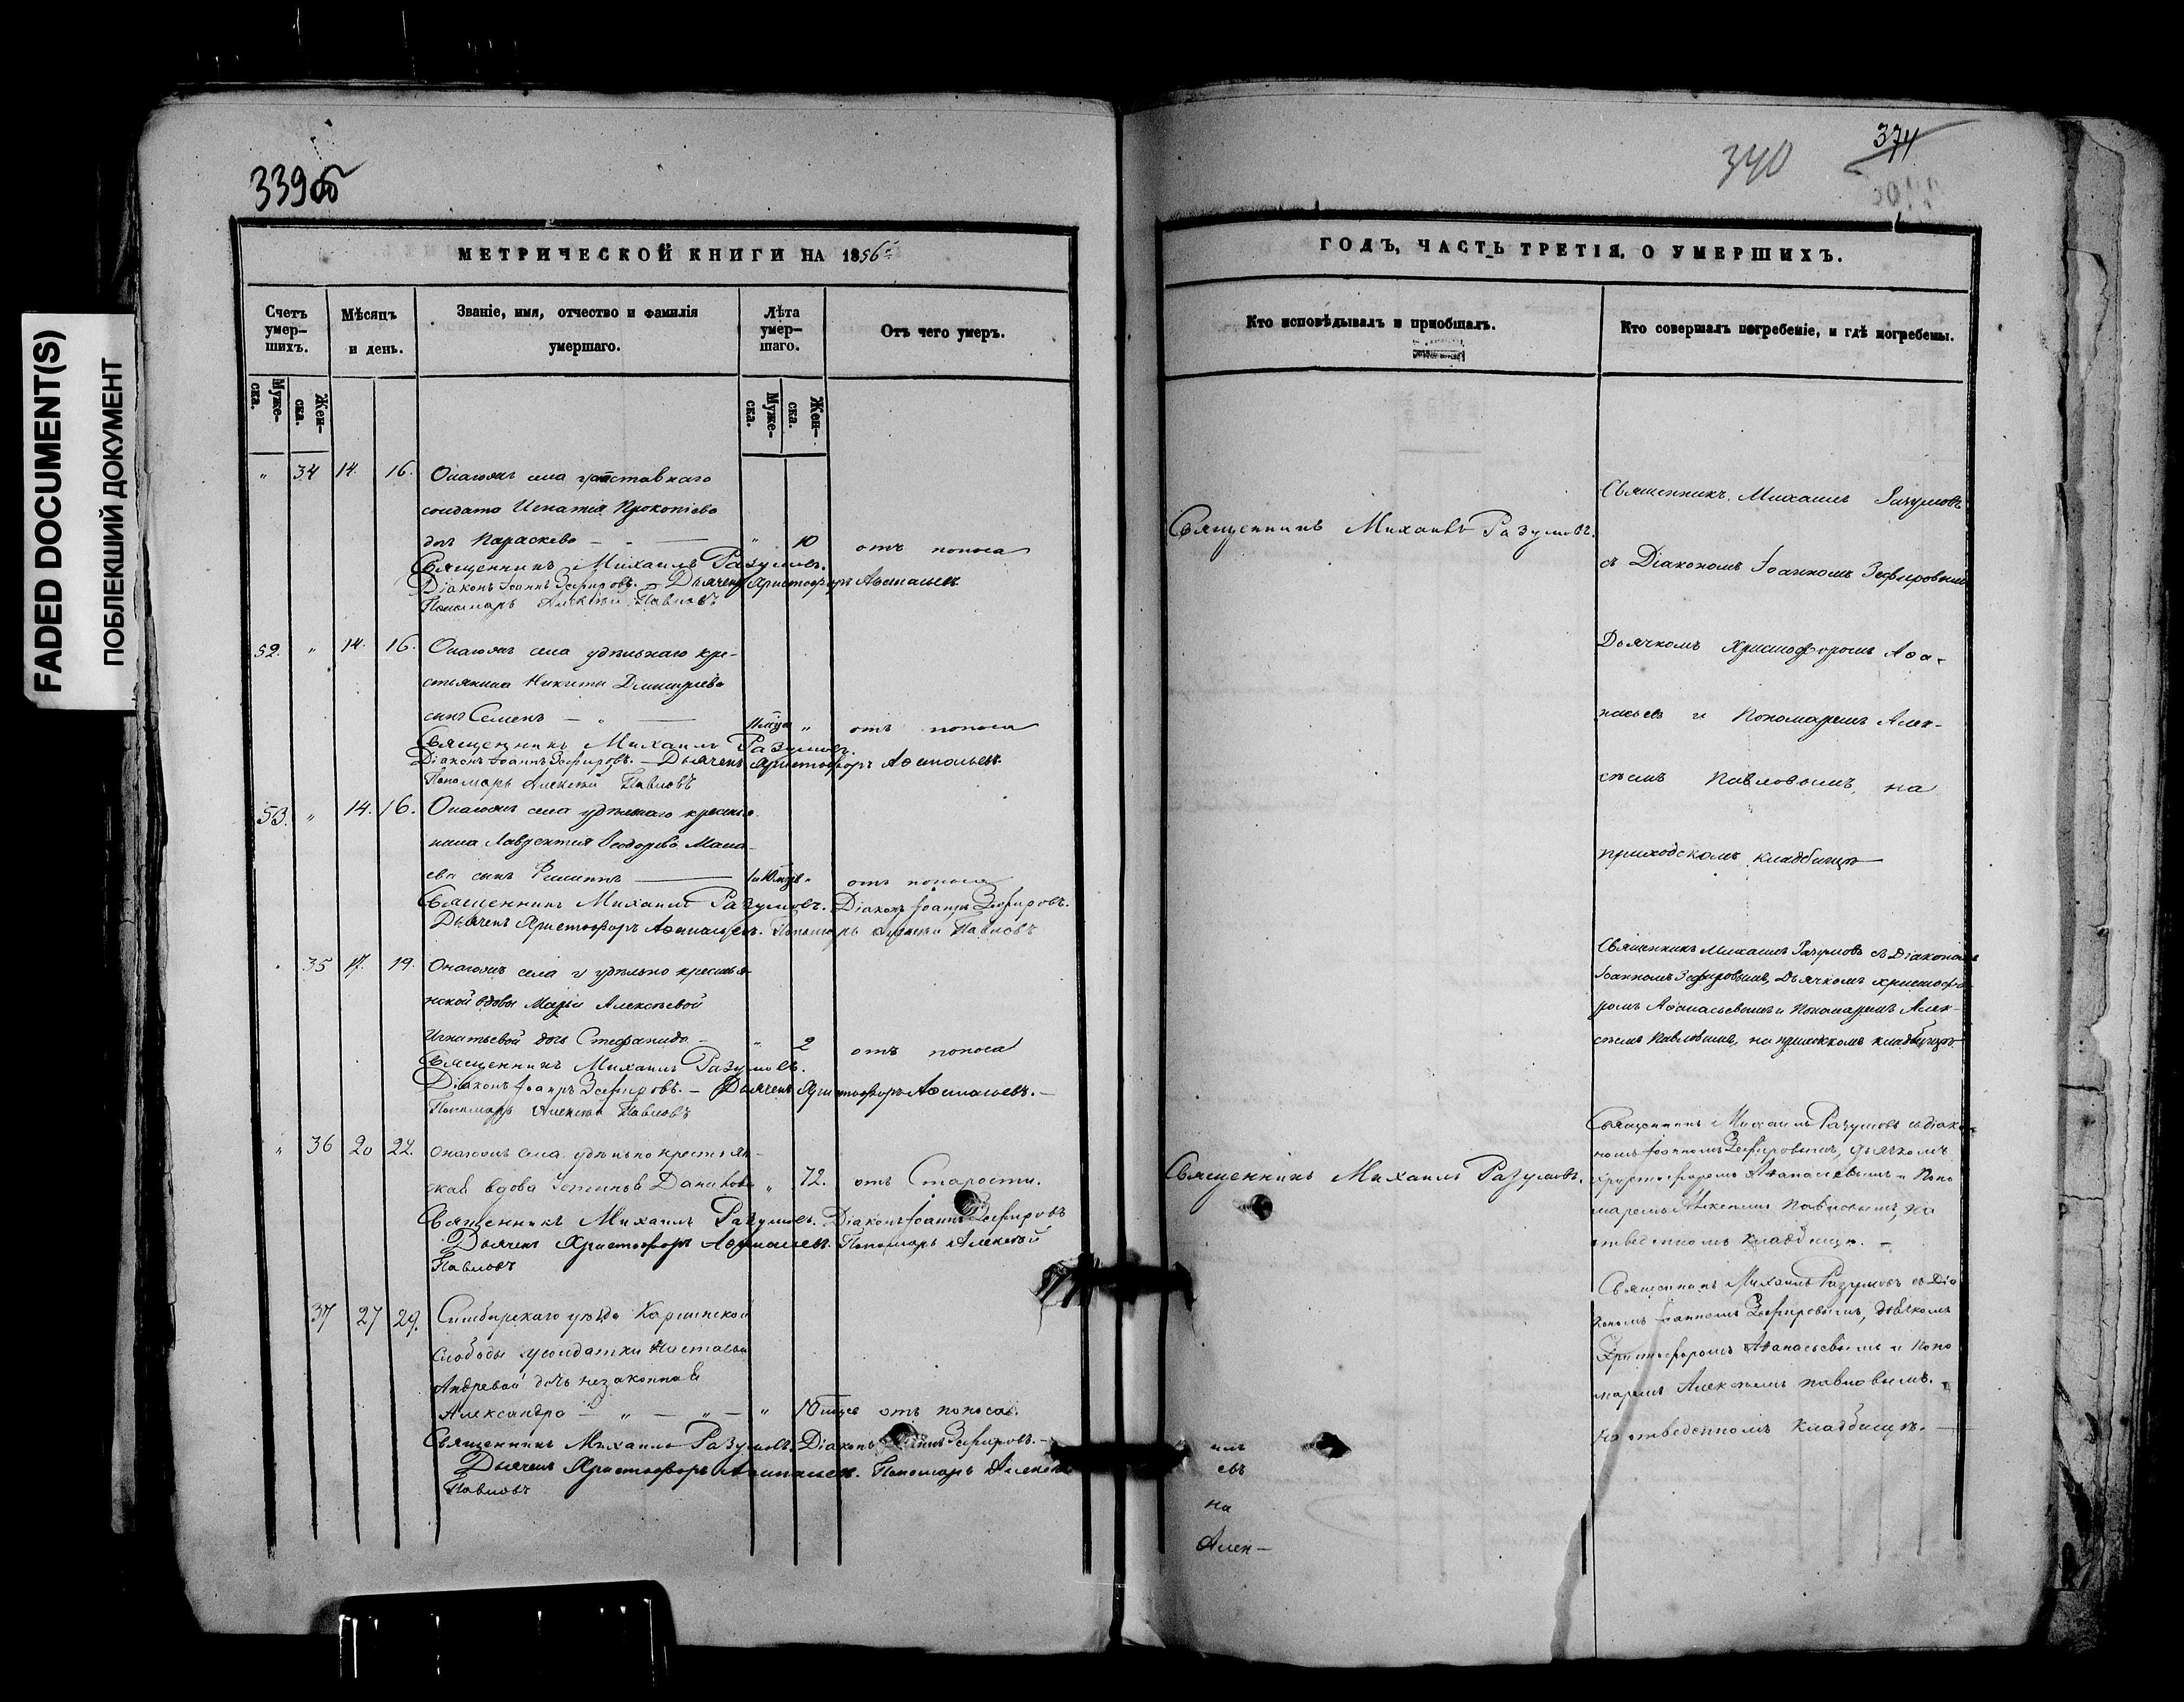 FADED DOCUMENT(S)
ПОБЛЕКШИЙ ДОКУМЕНТ
339об
МЕТРИЧЕСКОЙ КНИГИ НА 1856
Счетъ умер-шихъ.
Мѣсяцъ и день.
Званіе, имя, отчество и фамилія умершаго.
Лѣта умер-шаго.
Отъ чего умеръ.
Муже-ска.
Жен-ска.
Муже-ска.
Жен-ска.
" 34 14. 16. села
солдата Игнатія Прокопіева
дочь Параскева — " 10 отъ поноса
Священникъ Михаилъ Разумовъ.
Діаконъ Іоаннъ Зефировъ. — Дьячекъ Христофоръ Афанасьевъ
Пономарь Алексѣй Павловъ
52. " 14. 16. села удѣльнаго кре-
стьянина Никиты Дмитріева
сынъ Семенъ — " — " отъ поноса
Священникъ Михаилъ Разумовъ.
Діаконъ Іоаннъ Зефировъ. — Дьячекъ Христофоръ Афанасьевъ.
Пономарь Алексѣй Павловъ
53. " 14. 16. села удѣльнаго крестья-
нина Лаврентія Ѳеодорова
сынъ Филиппъ — " отъ поноса
Священникъ Михаилъ Разумовъ. Діаконъ Іоаннъ Зефировъ.
Дьячекъ Христофоръ Афанасьевъ. Пономарь Алексѣй Павловъ
" 35 17. 19. села удѣльно крестья-
нской вдовы Марьи Алексѣевой
Игнатьевой дочь Стефанида — " 2 отъ поноса
Священникъ Михаилъ Разумовъ.
Діаконъ Іоаннъ Зефировъ. — Дьячекъ Христофоръ Афанасьевъ. —
Пономарь Алексѣй Павловъ
" 36 20 22. села удѣльно крестьян-
ская вдова Устинья Данилова " 72. отъ Старости.
Священникъ Михаилъ Разумовъ. Діаконъ Іоаннъ Зефировъ
Дьячекъ Христофоръ Афанасьевъ. Пономарь Алексѣй
Павловъ
37 27 29. Симбирскаго уѣзда
Слободы солдатки Настасьи
Андревой дочь незаконная
Александра — " — " — " отъ поноса.
Священникъ Михаилъ Разумовъ. Діаконъ Іоаннъ Зефировъ. —
Дьячекъ Христофоръ Афанасьевъ. Пономарь Алексѣй
Павловъ
340
374
ГОДЪ, ЧАСТЬ ТРЕТІЯ, О УМЕРШИХЪ.
Кто исповѣдывалъ и пріобщалъ.
Кто совершалъ погребеніе, и гдѣ погребены.
Священникъ Михаилъ Разумовъ.
Священникъ Михаилъ Разумовъ
съ Діакономъ Іоанномъ Зефировымъ
Дьячкомъ Христофоромъ Афа-
насьевъ и Пономаремъ Алек-
сѣемъ Павловымъ, на
приходскомъ кладбищѣ —
Священникъ Михаилъ Разумовъ съ Діакономъ
Іоанномъ Зефировымъ, Дьячкомъ Христофо-
ромъ Афанасьевымъ и Пономаремъ Алек-
сѣемъ Павловымъ, на приходскомъ кладбищѣ
Священникъ Михаилъ Разумовъ.
Священникъ Михаилъ Разумовъ съ Діако-
номъ Іоанномъ Зефировымъ, Дьячкомъ
Христофоромъ Афанасьевымъ и Поно
маремъ Алексѣемъ Павловымъ, на
отведенномъ кладбищѣ. —
Священникъ Михаилъ Разумовъ съ Діа
кономъ Іоанномъ Зефировымъ, дьячкомъ
Христофоромъ Афанасьевымъ и Поно
маремъ Алексѣемъ Павловымъ.
На отведенномъ кладбищѣ. —
евъ
на
Алек—